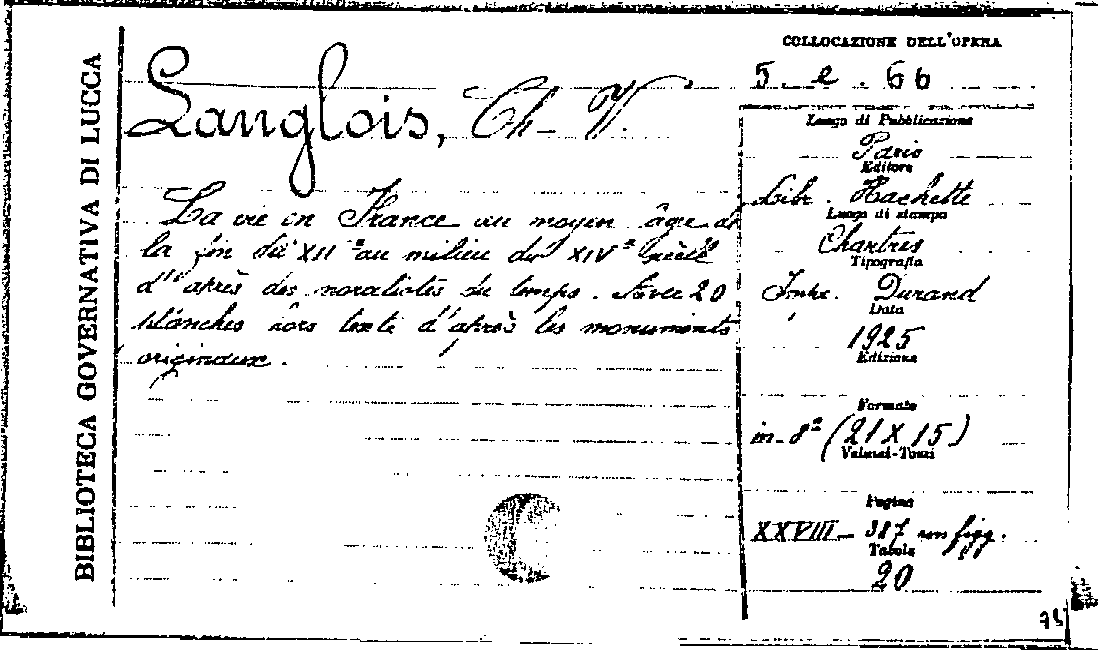 BIBLIOTECA GOVERNATIVA DI LUCCA
Langlois, Ch. V.
La vie en France au moyen âge de
la fin du XIIe au milieu du XIVe siècle
d'après des moralistes du temps. Avec 20
planches hors texte d'après les monuments
originaux.
COLLOCAZIONE DELL'OPERA
5. e. 66
Luogo di Pubblicazione
Paris
Editore
Libr. Hachette
Luogo di stampa
Chartres
Tipografia
Impr. Durand
Data
1925
Edizione
Formato
in-8° (21 X 15)
Volumi-Tomi
Pagine
XXVIII - 387 con figg.
Tavole
20